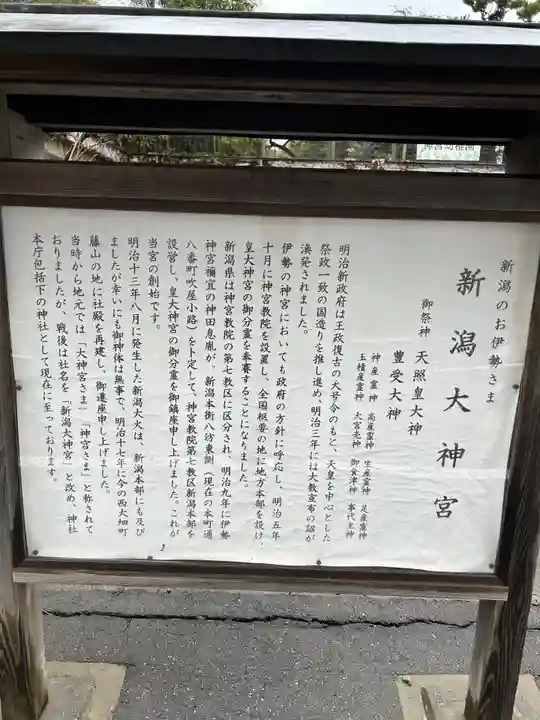 神宮幼稚園
新潟のお伊勢さま
新潟大神宮
御祭神 天照皇大神
豊受大神
神産霊神 高産霊神 生産霊神 足産霊神
玉積産霊神 大宮売神 御食津神 事代主神
明治新政府は王政復古の大号令のもと、天皇を中心とした
祭政一致の国造りを推し進め、明治三年には大教宣布の詔が
渙発されました。
伊勢の神宮においても政府の方針に呼応し、明治五年
十月に神宮教院を設置し、全国枢要の地に地方本部を設け、
皇大神宮の御分霊を奉斎することになりました。
新潟県は神宮教院の第七教区に区分され、明治九年に伊勢
神宮禰宜の神田息胤が、新潟本街八坊東側（現在の本町通
八番町吹屋小路）をト定して、神宮教院第七教区新潟本部を
設営し、皇大神宮の御分霊を御鎮座申し上げました。これが
当宮の創始です。
明治十三年八月に発生した新潟大火は、新潟本部にも及び
ましたが幸いにも御神体は無事で、明治十七年に今の西大畑町
藤山の地に社殿を再建し、御遷座申し上げました。
当時から地元では「大神宮さま」「神宮さま」と称されて
おりましたが、戦後は社名を「新潟大神宮」と改め、神社
本庁包括下の神社として現在に至っております。